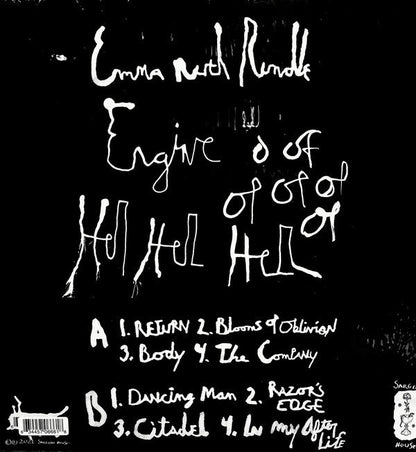 Emma Ruth Rundle
Engine o of
of of of
of
Hell Hell Hell
A 1. RETURN 2. Blooms of Oblivion
3. Body 4. The Company
B 1. Dancing Man 2. RAZOR'S
EDGE
3. Citadel 4. In my After
LIFE
SARGENT
HOUSE